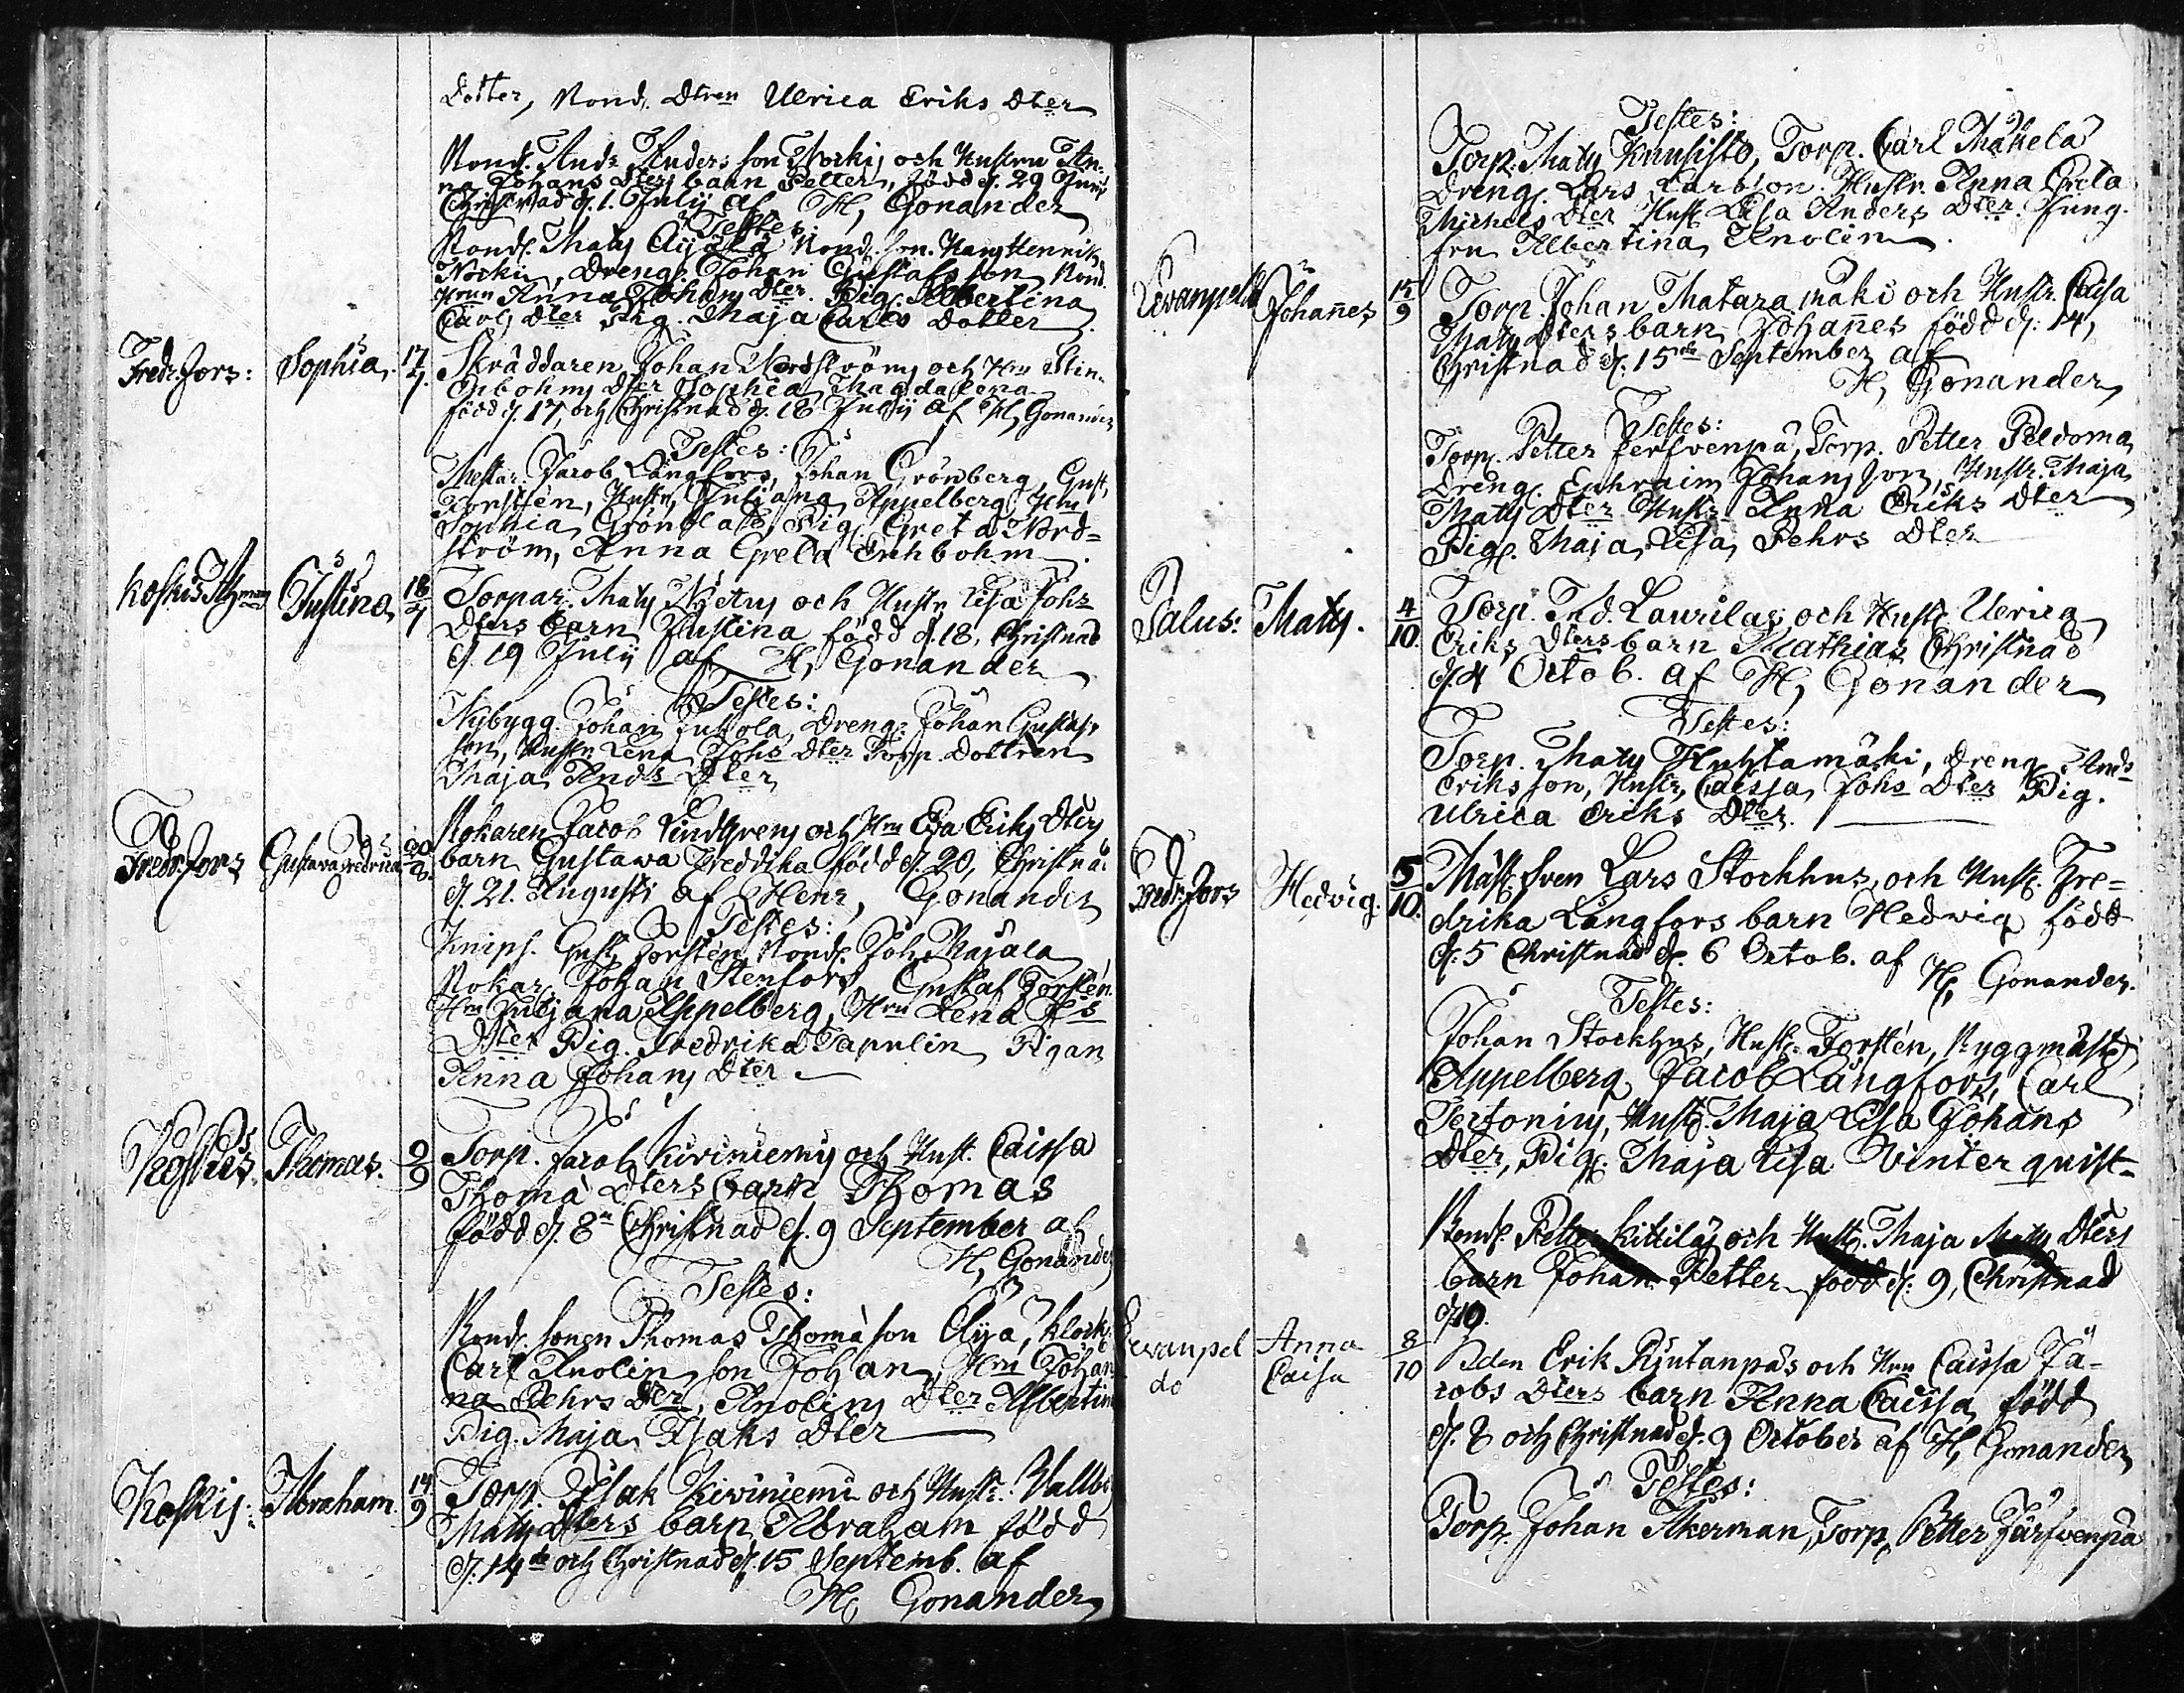 Dotter, Bond. Dtren Ulrica Eriks Dter
Bond. Ands Anders son Norki och Hustru An-
na Johans Dters barn Petter, född d. 29 Junii
Christnad d. 1. Julij af H, Gonander
Testes:
Bond. Matts Äijälä Bond. son. Hans Henriks
Norki, Dreng. Johan Gustafs son, Bond.
Hrun Anna Johans Dter. Pig. Albertina
Carls Dter Pig. Maja Carls Dotter
Fredr. fors: Sophia. 17/7. Skräddaren Johan Nordström och Hru Stin-
Enbohms Dter Sophia Magdalena
född d. 17, och Christnad d. 18 Julij af H, Gonander
Testes:
Mestar. Jacob Långfors, Johan Grönberg, Gust,
Forstén, Hustr, Juliana Appelberg Hru
Sophia Grönblad, Pig. Greta Nord=
ström, Anna Greta Enbohm.
Koskis Justina 18/7 Torpar. Matts och Hustr, Lisa Johs
Dters barn Justina född d. 18, Christnad
d. 19 Julij af H, Gonander
Testes:
Nybygg. Johan Jussola, Dreng: Johan Gustafs
son, Hustr Lena Johs Dter Torp. Dottren
Maja Ands Dter
Fredr. fors Gustava Fredrica 20/8. Kokaren Jacob Lindgren och Hru Eva Eriks Dters
barn Gustawa Freddika född d. 20, Christnad
d. 21. Augusti af Henr, Gonander
Testes:
Knips. Gust, Forstén, Bond. Joh. Majala
Kokar. Johan Stenfors, Gustaf Forstén.
Hru Juliana Appelberg, Hru Lena
Dter Pig. Fredrika Tapulin Pigan
Anna Johans Dter
Koskis. Thomas. 9/9 Torp. Jacob Kiviniemi och Hust. Caissa
Thomä Dters barn Thomas
född d. 8de Christnad d. 9 September af
H, Gonander
Testes:
Bond. sonen Thomas Thomä son Äijä, Klock.
Carl Knolin, son Johan, Hru Johan-
na Pehrs Der, Knolins Dter Albertin
Pig. Maja Isaks Dter
Koskis: Abraham. 14/9 Torp. Isak Kiviniemi och Hustr. Vallbo
Matts Dters barn Abraham född
d. 14de och Christnad d. 15 Septemb. af
H, Gonander
Testes:
Torp. Matts Knusisto, Torp. Carl Mäkelä
Dreng. Lars Larsson. Hustr. Anna Greta
Michels Dter Hust. Lisa Anders Dter. Jung-
fru Albertina Knolin.
Levanpelt Johañes 15/9 Torp. Johan Mataramäki och Hustr. Caisa
Matts Dters barn Johañes född d. 14,
Christnad d. 15de September af
H, Gonander
Testes:
Torp. Petter Jerfvenpä, Torp. Petter Peldoma,
Dreng. Ephraim Johans son, Hustr. Maja
Matts Dter Hustr. Anna Eriks Dter
Pig. Maja Lisa Pehrs Dter
Salus: Matts. 4/10. Torp. And. Laurila, och Hustr Ulrica
Eriks Dters barn Mathias Christnad
d. 4 Octob. af H, Gonander
Testes:
Torp. Matts Huhtamäki, Dreng. Ands
Eriksson, Hustr, Caissa Johs Dter Pig.
Ulrica Eriks Dter.
Fredr. fors Hedvig. 5/10. Mäst. sven Lars Stockhus, och Hust. Fre=
drika Långfors barn Hedwig född
d. 5 Christnad d. 6 Octob. af
H, Gonander.
Testes:
Johan Stockhus, Hust. Forstén, Byggmäst.
Appelberg, Jacob Långfors, Carl
Hust. Maja Lisa Johans
Dter, Pig. Maja Lisa Winterquist-
Bond. Petter Kittilä och Hust. Maja Matts Dters
barn Johan Petter född d. 9, Christnad
d. 10.
Levanpel
do Anna
Caisa 8/10 Bden Erik Rjutanpäs och Hru Caissa Ja-
cobs Dters barn Anna Caissa född
d. 8 och Christnad d. 9 October af H, Gonander
Testes:
Torp. Johan Åkerman, Torp, Petter Järfvenpä